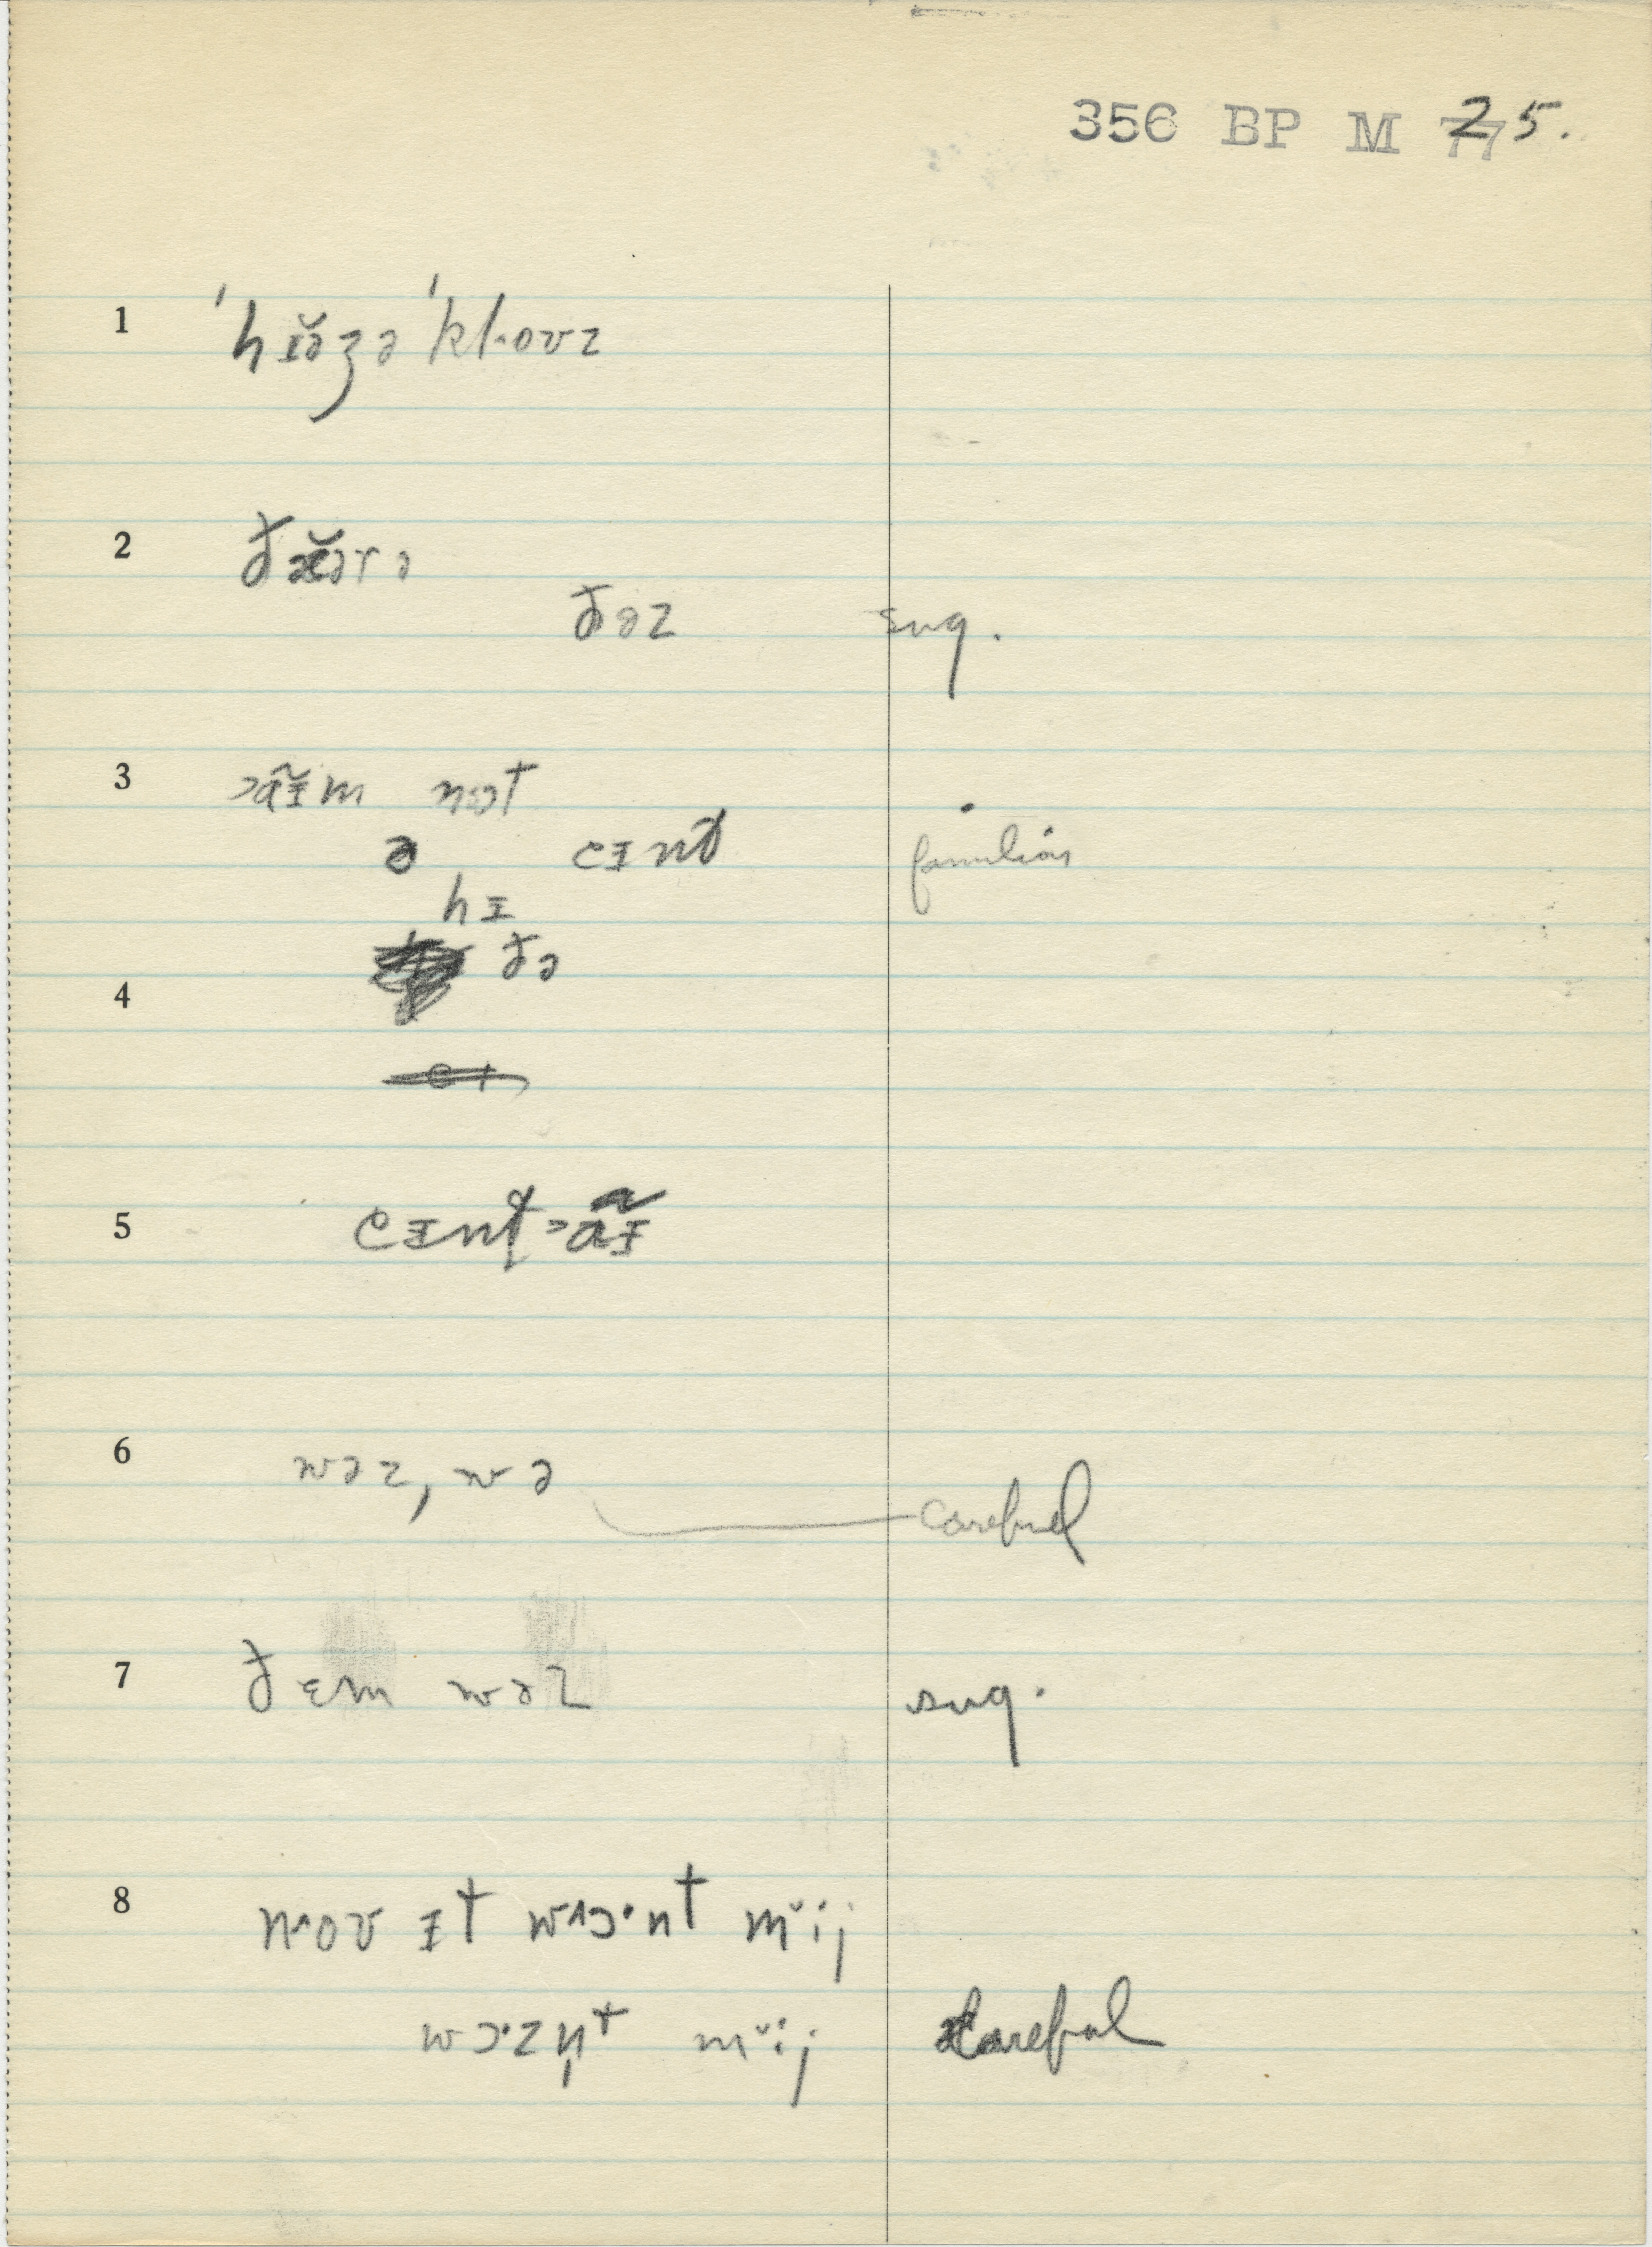 356 BP M 25.
1 ˈhɪə̆ʒə ˈklovz
2 ðæə̆rə
ðəz sug.
3 ɔãɪ̆m not
ə cɪnt familiar
hɪ
ðə
4
5 cɪnt ɔãɪ̆
6 wəz, wə careful
7 ðɛm wəz sug.
8 nʌoʊ ɪt wʌɔ·nt mĭij
wɔ·zn̩t mĭij careful